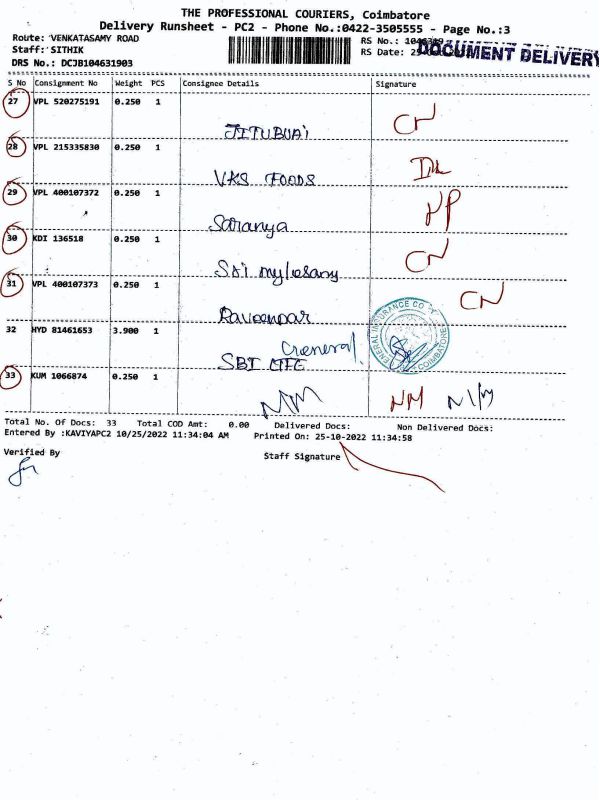 THE PROFESSIONAL COURIERS, Coimbatore
Delivery Runsheet - PC2 - Phone No.:0422-3505555 - Page No.:3
Route: VENKATASAMY ROAD
Staff: SITHIK
DRS No.: DCJB104631903
RS No.:
RS Date:
DOCUMENT DELIVERY
S No Consignment No Weight PCS Consignee Details Signature
27 VPL 520275191 0.250 1
JITUBHAI CN
28 VPL 215335830 0.250 1
VKS FOODS
29 VPL 400107372 0.250 1
Saranya NP
30 KDI 136518 0.250 1
SAi CN
31 VPL 400107373 0.250 1
CN
32 HYD 81461653 3.900 1
General
SBI
GENERAL INSURANCE CO
COIMBATORE
33 KUM 1066874 0.250 1
NM NM
Total No. Of Docs: 33 Total COD Amt: 0.00 Delivered Docs: Non Delivered Docs:
Entered By :KAVIYAPC2 10/25/2022 11:34:04 AM Printed On: 25-10-2022 11:34:58
Verified By Staff Signature